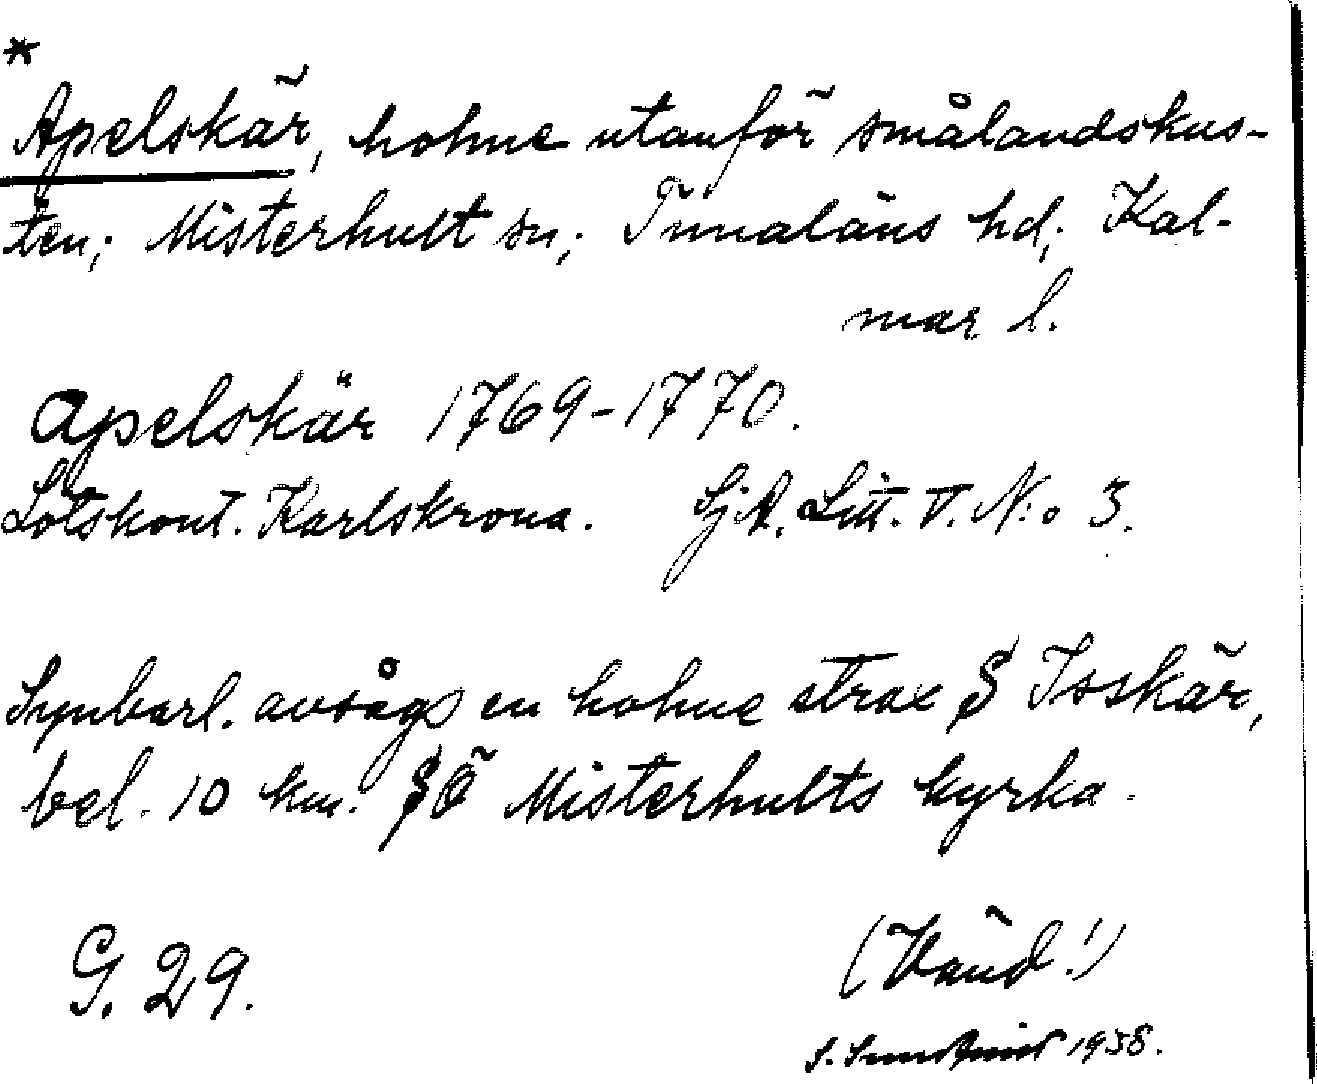 *
Apelskär, holme utanför smålandskus-
ten; Misterhult sn; Tunaläns hd; Kal-
mar l.
Apelskär 1769-1770.
Lotskont. Karlskrona. SjA. Litt. T. N:o 3.
Synbarl. avsågs en holme strax S Isskär,
bel. 10 km. SÖ Misterhults kyrka.
G. 29.
(Vänd!)
S. Sundquist 1938.